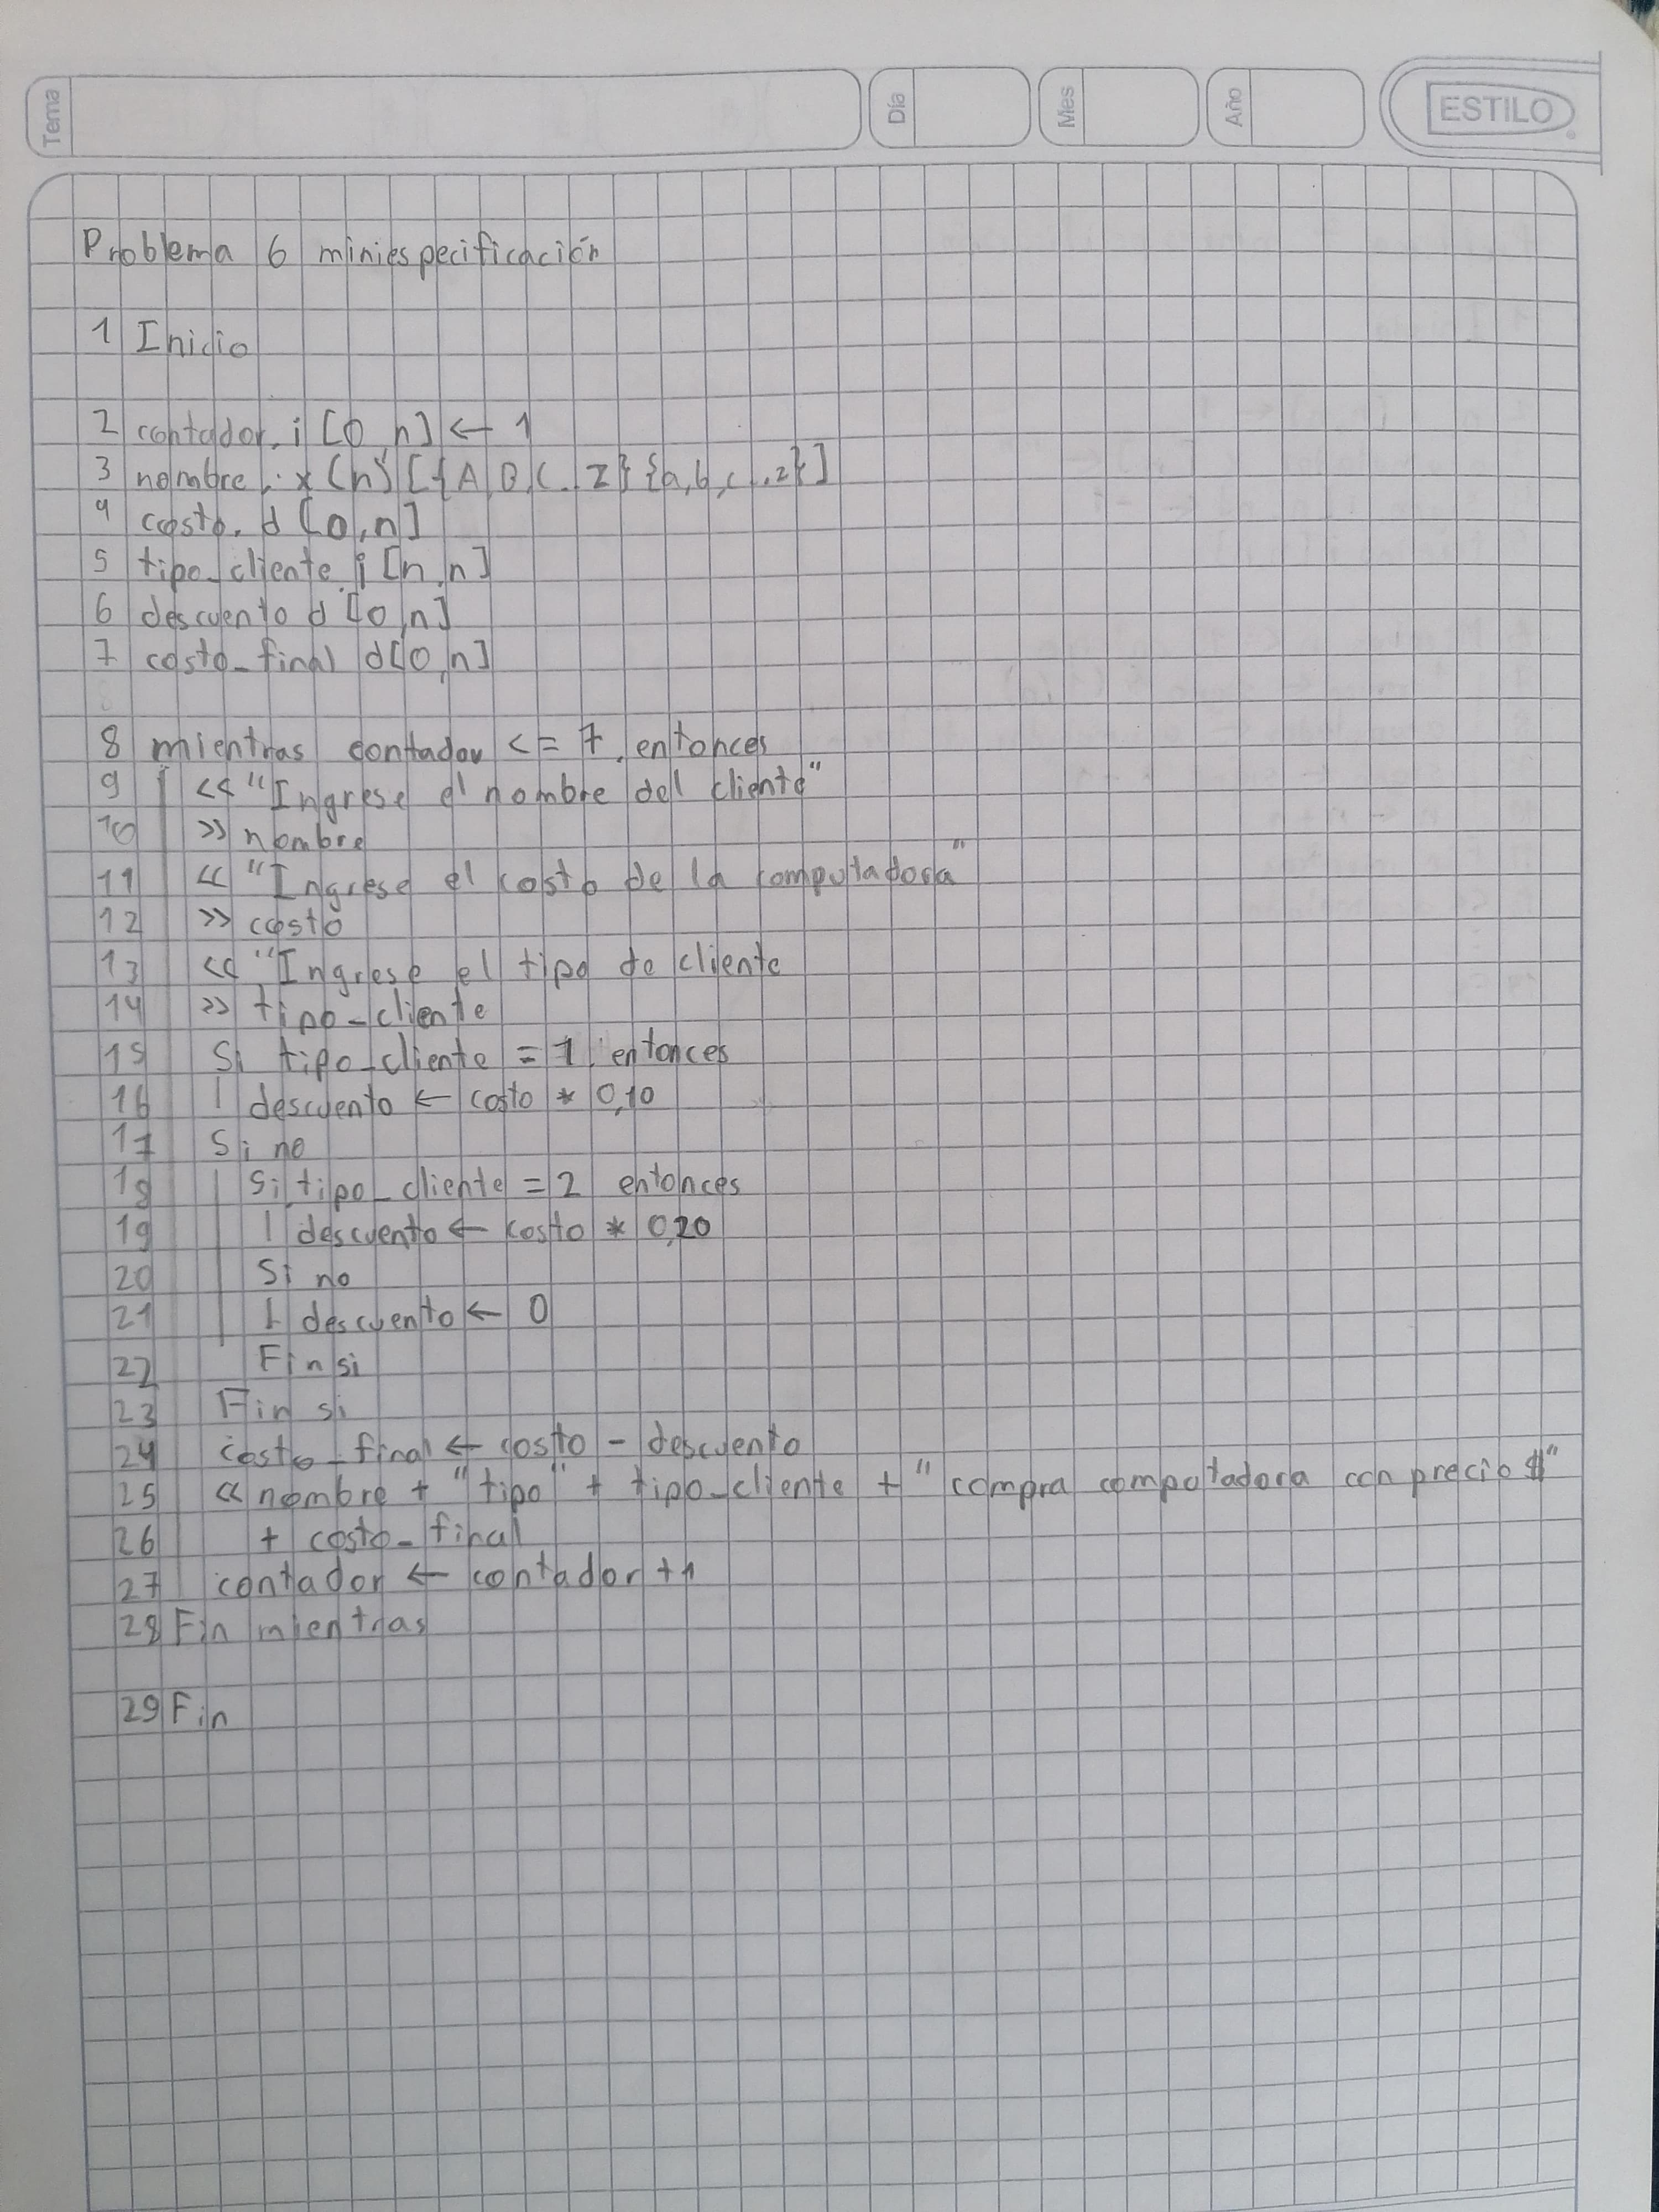 Tema
Día
Mes
Año
ESTILO
Problema 6 miniespecificación
1 Inicio
2 contador. i [0, n] ← 1
3 nombre. x (n) [{A,B,C..Z}{a,b,c,..z}]
4 costo. d [0,n]
5 tipo_cliente. i [n,n]
6 descuento d [0,n]
7 costo_final d[0,n]
8 mientras contador <= 7, entonces
9 << "Ingrese el nombre del cliente"
10 >> nombre
11 << "Ingrese el costo de la computadora"
12 >> costo
13 << "Ingrese el tipo de cliente
14 >> tipo_cliente
15 Si tipo_cliente = 1. entonces
16 descuento ← costo * 0,10
17 Si no
18 Si tipo_cliente = 2 entonces
19 descuento ← costo * 0,20
20 Si no
21 descuento ← 0
22 Fin si
23 Fin si
24 costo_final ← costo - descuento
25 << nombre + "tipo" + tipo_cliente + "compra computadora con precio $"
26 + costo_final
27 contador ← contador +1
28 Fin mientras
29 Fin